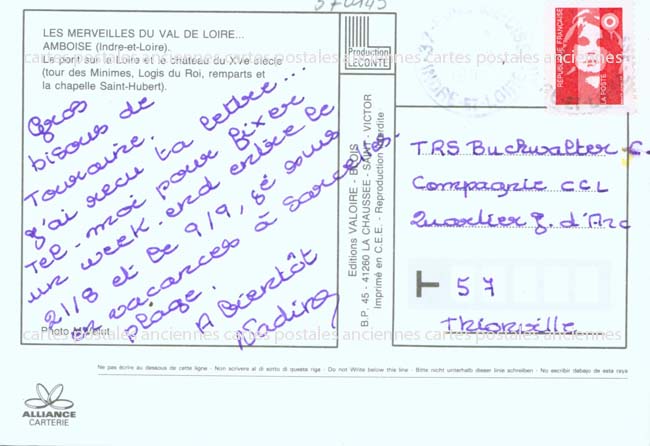 57 0145
LES MERVEILLES DU VAL DE LOIRE...
AMBOISE (Indre-et-Loire).
Le pont sur la Loire et le château du XVe siècle
(tour des Minimes, Logis du Roi, remparts et
la chapelle Saint-Hubert).
Gros
bisous de
Touraine.
J'ai reçu ta lettre...
Tel-moi pour fixer
un week-end entre le
21/8 et le 9/9, je suis
en vacances à
plage.
A Bientôt
Nadine
Photo
Production
LECONTE
Editions VALOIRE - BLOIS
B.P. 45 - 41260 LA CHAUSSÉE - SAINT - VICTOR
Imprimé en C.E.E. - Reproduction interdite
INDRE-ET-LOIRE
REPUBLIQUE FRANÇAISE
LA POSTE
TRS Buckwalter C.
Compagnie CCL
Quartier J. d'Arc
T 57
Thionville
cartes postales anciennes cartes postales anciennes cartes postales anciennes
cartes postales anciennes cartes postales anciennes cartes postales anciennes
Ne pas écrire au dessous de cette ligne - Non scrivere al di sotto di questa riga - Do not Write below this line - Bitte nicht unterhalb dieser linie schreiben - No escribir debajo de esta raya
ALLIANCE
CARTERIE